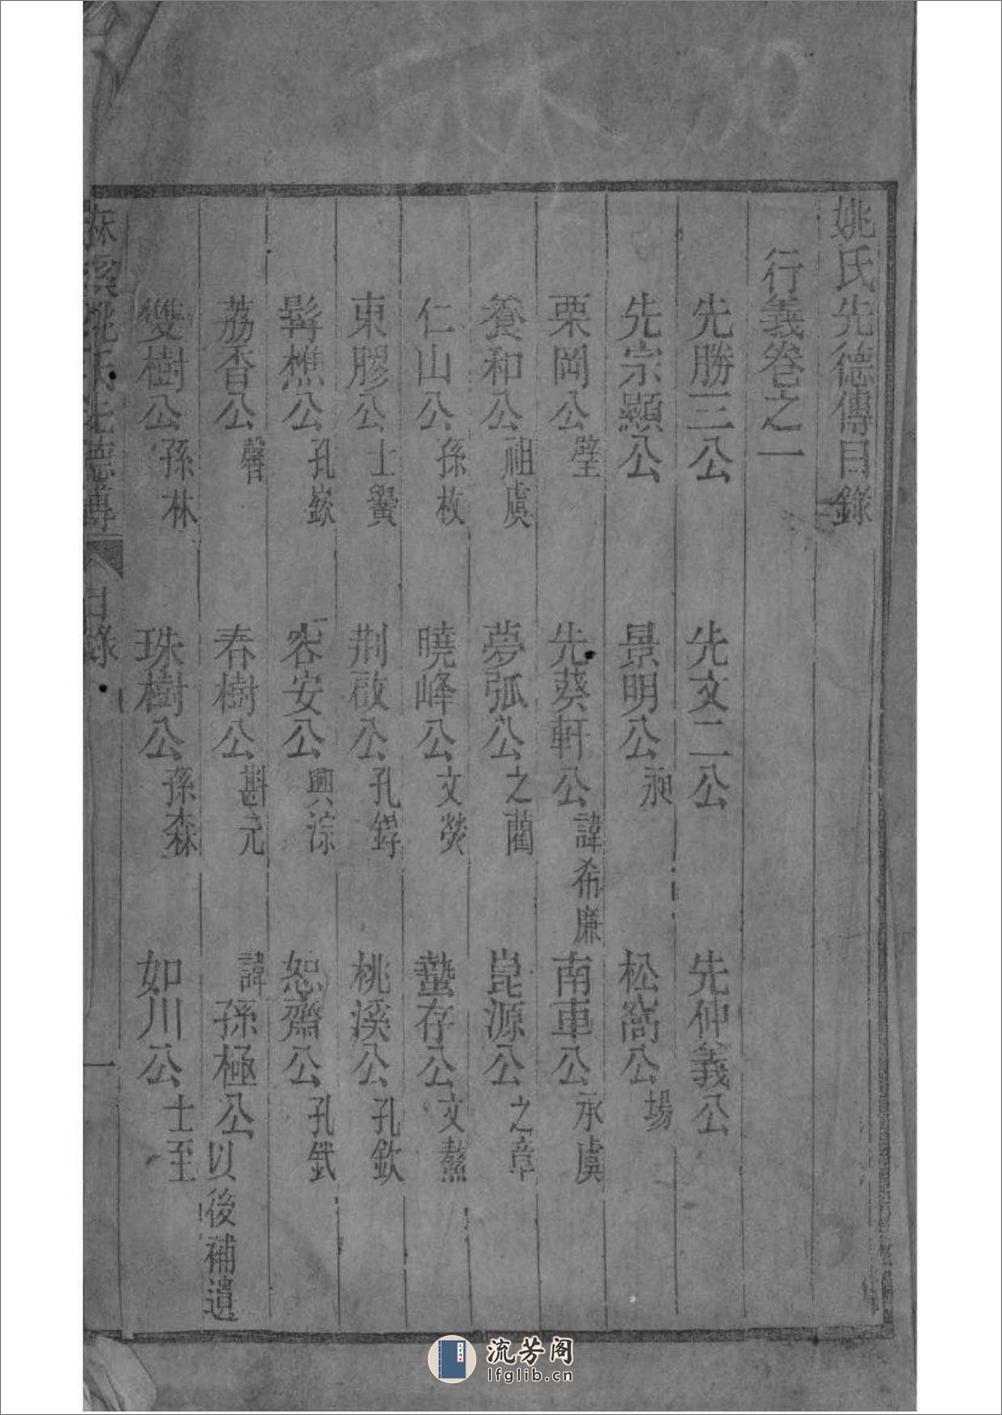 姚氏先德傳目錄
行義卷之一
先勝三公 先文二公 先仲義公
先宗顯公 景明公昶 松窩公場
栗岡公壁 先葵軒公諱希廉 南車公承虞
養和公祖虞 夢弧公之藺 崑源公之章
仁山公孫枚 曉峰公文熒 蟄存公文熬
東膠公士黌 荆啟公孔鋝 桃溪公孔欽
髯樵公孔嶔 容安公興淙 恕齋公孔鉽
荔香公馨 春樹公斟元 諱孫極公以後補遺
雙樹公孫林 珠樹公孫森 如川公士至
麻溪姚氏先德傳 目錄 一
流芳阁
lfglib.cn